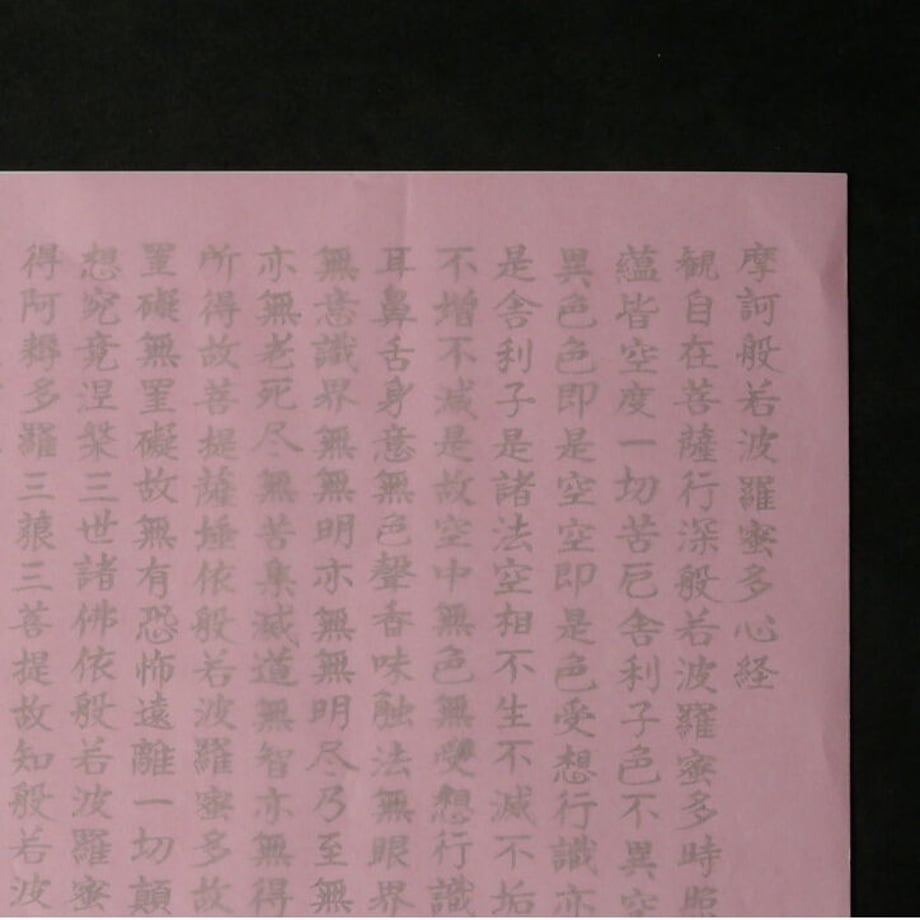 摩訶般若波羅蜜多心経
観自在菩薩行深般若波羅蜜多時照
蘊皆空度一切苦厄舎利子色不異空
異色色即是空空即是色受想行識亦
是舎利子是諸法空相不生不滅不垢
不増不滅是故空中無色無受想行識
耳鼻舌身意無色聲香味触法無眼界
無意識界無無明亦無無明尽乃至無
亦無老死尽無苦集滅道無智亦無得
所得故菩提薩埵依般若波羅蜜多故
罣礙無罣礙故無有恐怖遠離一切顛
想究竟涅槃三世諸佛依般若波羅蜜
得阿耨多羅三藐三菩提故知般若波